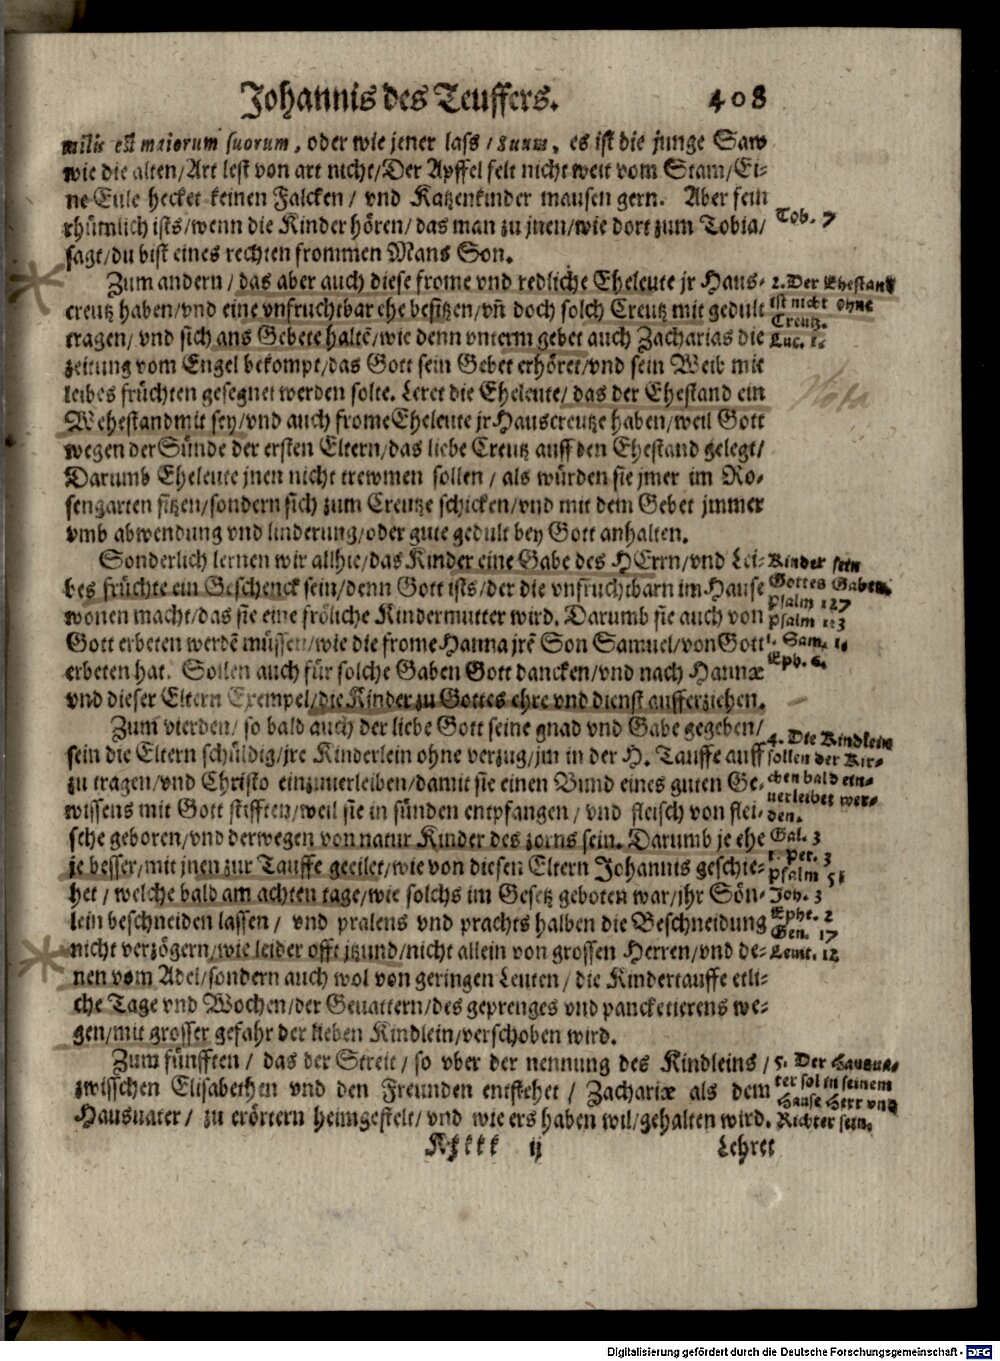 Johannis des Teuffers. 408
milis est maiorum suorum, oder wie jener lass / Suum, es ist die junge Saw
wie die alten / Art lest von art nicht / Der Apffel felt nicht weit vom Stam / Ei-
ne Eule hecket keinen Falcken / vnd Katzenkinder mausen gern. Aber fein
rhümlich ists / wenn die Kinder hören / das man zu jnen / wie dort zum Tobia /
Tob. 7
sagt / du bist eines rechten frommen Mans Son.
Zum andern / das aber auch diese frome vnd redliche Eheleute jr Haus-
creutz haben / vnd eine vnfruchtbar ehe besitzen / vñ doch solch Creutz mit gedult
tragen / vnd sich ans Gebete haltē / wie denn vnterm gebet auch Zacharias die
zeitung vom Engel bekompt / das Gott sein Gebet erhöret / vnd sein Weib mit
2. Der Ehestand
ist nicht ohne
Creutz.
Luc. 1.
leibes früchten gesegnet werden solte. Leret die Eheleute / das der Ehestand ein
Wehestand mit sey / vnd auch frome Eheleute jr Hauscreutze haben / weil Gott
wegen der Sünde der ersten Eltern / das liebe Creutz auff den Ehestand gelegt /
Darumb Eheleute jnen nicht trewmen sollen / als würden sie jmer im Ro-
sengarten sitzen / sondern sich zum Creutze schicken / vnd mit dem Gebet jmmer
vmb abwendung vnd linderung / oder gute gedult bey Gott anhalten.
Sonderlich lernen wir allhie / das Kinder eine Gabe des HErrn / vnd Lei-
bes früchte ein Geschenck sein / denn Gott ists / der die vnfruchtbarn im Hause
wonen macht / das sie eine fröliche Kindermutter wird. Darumb sie auch von
Gott erbeten werdē müssen / wie die frome Hanna jrē Son Samuel / von Gott
erbeten hat. Sollen auch für solche Gaben Gott dancken / vnd nach Hannæ
vnd dieser Eltern Exempel / die Kinder zu Gottes ehre vnd dienst aufferziehen.
Kinder sein
Gottes Gaben
Psalm 127
Psalm 113
1. Sam. 1.
Eph. 6.
Zum vierden / so bald auch der liebe Gott seine gnad vnd Gabe gegeben /
sein die Eltern schüldig / jre Kinderlein ohne verzug / jm in der H. Tauffe auff
zu tragen / vnd Christo einzuuerleiben / damit sie einen Bund eines guten Ge-
wissens mit Gott stifften / weil sie in sünden entpfangen / vnd fleisch von flei-
sche geboren / vnd derwegen von natur Kinder des zorns sein. Darumb je ehe
je besser / mit jnen zur Tauffe geeilet / wie von diesen Eltern Johannis geschie-
het / welche bald am achten tage / wie solchs im Gesetz geboten war / ihr Sön-
lein beschneiden lassen / vnd pralens vnd prachts halben die Beschneidung
nicht verzögern / wie leider offt jtzund / nicht allein von grossen Herren / vnd de-
nen vom Adel / sondern auch wol von geringen Leuten / die Kindertauffe etli-
che Tage vnd Wochen / der Geuattern / des geprenges vnd pancketierens we-
gen / mit grosser gefahr der lieben Kindlein / verschoben wird.
4. Die Kindlein
sollen der Kir-
chen bald ein-
uerleibet wer-
den.
Gal. 3
1. Pet. 3
Psalm 51
Joh. 3
Ephe. 2
Gen. 17
Leuit. 12
Zum fünfften / das der Streit / so vber der nennung des Kindleins /
zwisschen Elisabethen vnd den Freunden entstehet / Zachariæ als dem
Hausuater / zu erörtern heimgestelt / vnd wie ers haben wil / gehalten wird.
5. Der Hausua-
ter sol in seinem
Hause Herr vnd
Richter sein.
Kkkkk ij Lehret
Digitalisierung gefördert durch die Deutsche Forschungsgemeinschaft - DFG